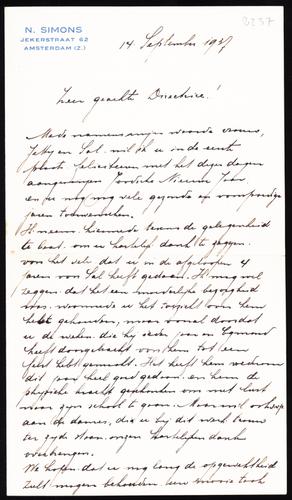 N. SIMONS
JEKERSTRAAT 62
AMSTERDAM (Z.)
3237
14 September 1937
Zeer geachte Directrice!
Mede namens mijn waarde vrouw,
Jetty en Sal. wil ik u in de eerste
plaats feliciteeren met het dezer dagen
aangevangen Joodsche Nieuw Jaar
en u nog vele gezonde en voorspoedige
jaren toewenschen.
Ik neem hiermede tevens de gelegenheid
te baat om u hartelijk dank te zeggen
voor het vele dat u in de afgeloopen 4
jaren voor Sal heeft gedaan. Ik mag wel
zeggen dat het een moederlijke bezorgdheid
was waarmede u het toezicht over hem
hebt gehouden, maar vooral doordat
u de weken die hij ieder jaar in Egmond
heeft doorgebracht voor hem tot een
feest hebt gemaakt. Het heeft hem wederom
dit jaar heel goed gedaan en hem de
physieke kracht geschonken om met lust
naar zijn school te gaan. Maar wil ook
aan de dames, die u bij dit werk trouw
ter zijde staan onzen hartelijken dank
overbrengen.
We hopen dat u nog lang de opgewektheid
zult mogen behouden een mooie taak